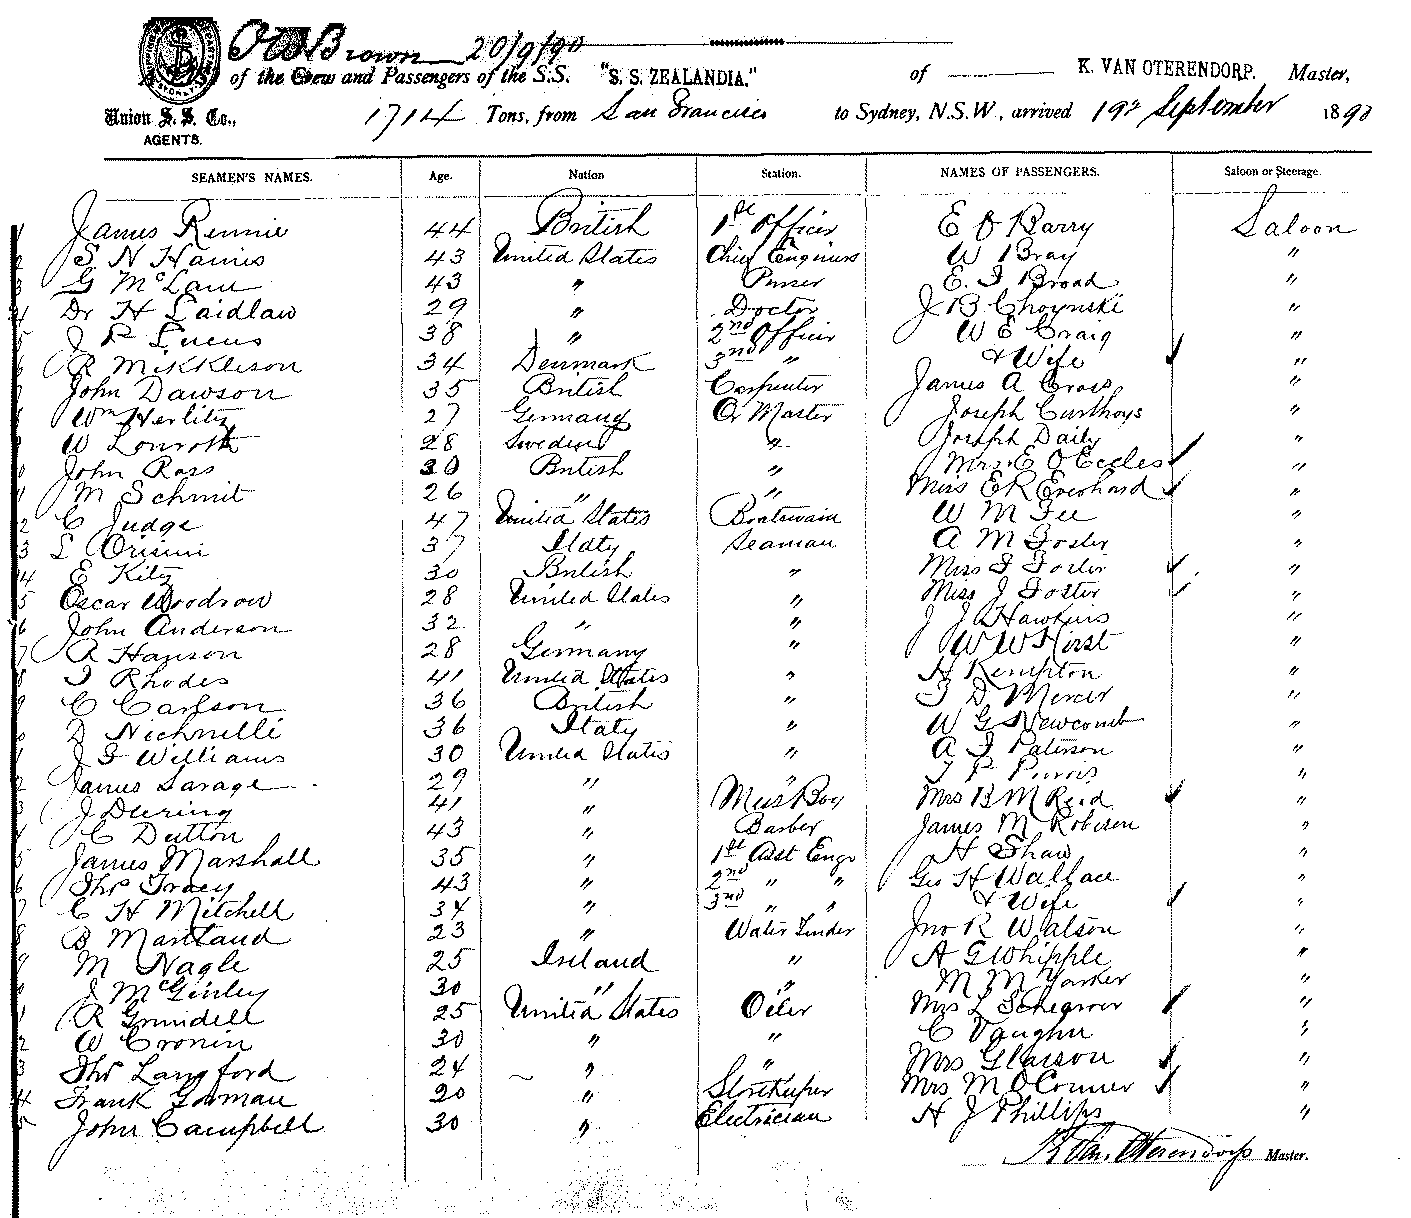 O W Brown 20/9/90
A LIST of the Crew and Passengers of the S.S. "S. S. ZEALANDIA." of K. VAN OTERENDORP. Master,
Union S. S. Co., AGENTS. 1714 Tons, from San Francisco to Sydney, N.S.W., arrived 19th September 1890
SEAMEN'S NAMES. Age. Nation Station. NAMES OF PASSENGERS. Saloon or Steerage.
1 James Rennie 44 British 1st Officer E O Barry Saloon
2 S N Haines 43 United States Chief Engineer W Bray "
3 G McLane 43 " Purser E. J Broad "
4 Dr H Laidlaw 29 " Doctor J B Choynski "
5 J P Lucus 38 " 2nd Officer W E Craig "
6 R Mikkleson 34 Denmark 3rd " & Wife "
7 John Dawson 35 British Carpenter James A Cross "
8 Wm Herlitz 27 Germany Qr Master Joseph Curthoys "
9 W Lonroth 28 Sweden " Joseph Daily "
10 John Ross 30 British " Mrs E O Eccles "
11 M Schmit 26 " " Miss E R Everhard "
12 C Judge 47 United States Boatswain W M Fee "
13 L Orisini 37 Italy Seaman A M Foster "
14 E Kitz 30 British " Miss F Foster "
15 Oscar Woodrow 28 United States " Miss J Foster "
16 John Anderson 32 " " J J Hawkins "
17 R Hanson 28 Germany " W W Hirst "
18 J Rhodes 41 United States " H Kempton "
19 C Carlson 36 British " J D Mercer "
20 D Nichnelli 36 Italy " W G Newcomb "
21 J F Williams 30 United States " A J Paterson "
22 James Savage 29 " " T P Purvis "
23 J Deering 41 " Mess Boy Mrs B M Reid "
24 C Dutton 43 " Barber James M Robison "
25 James Marshall 35 " 1st Asst Engr H Shaw "
26 Thos Tracy 43 " 2nd " " Geo H Wallace "
27 C H Mitchell 34 " 3rd " " & Wife "
28 B Maitland 23 " Water Tender Jno R Watson "
29 M Nagle 25 Ireland " A G Whipple "
30 J McGinley 30 " " M M Yarker "
31 R Grundell 25 United States Oiler Mrs L "
32 W Cronin 30 " " C Vaughn "
33 Thos Langford 24 " " Mrs "
34 Frank Gorman 20 " Storekeeper Mrs M O'Conner "
35 John Campbell 30 " Electrician H J Phillips "
K Van Oterendorp Master.